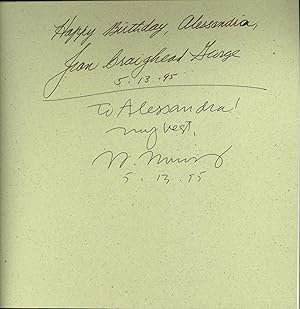 Happy Birthday, Alessandra,
Jean Craighead George
5.13.95
To Alessandra!
my best,
W.
5.13.95